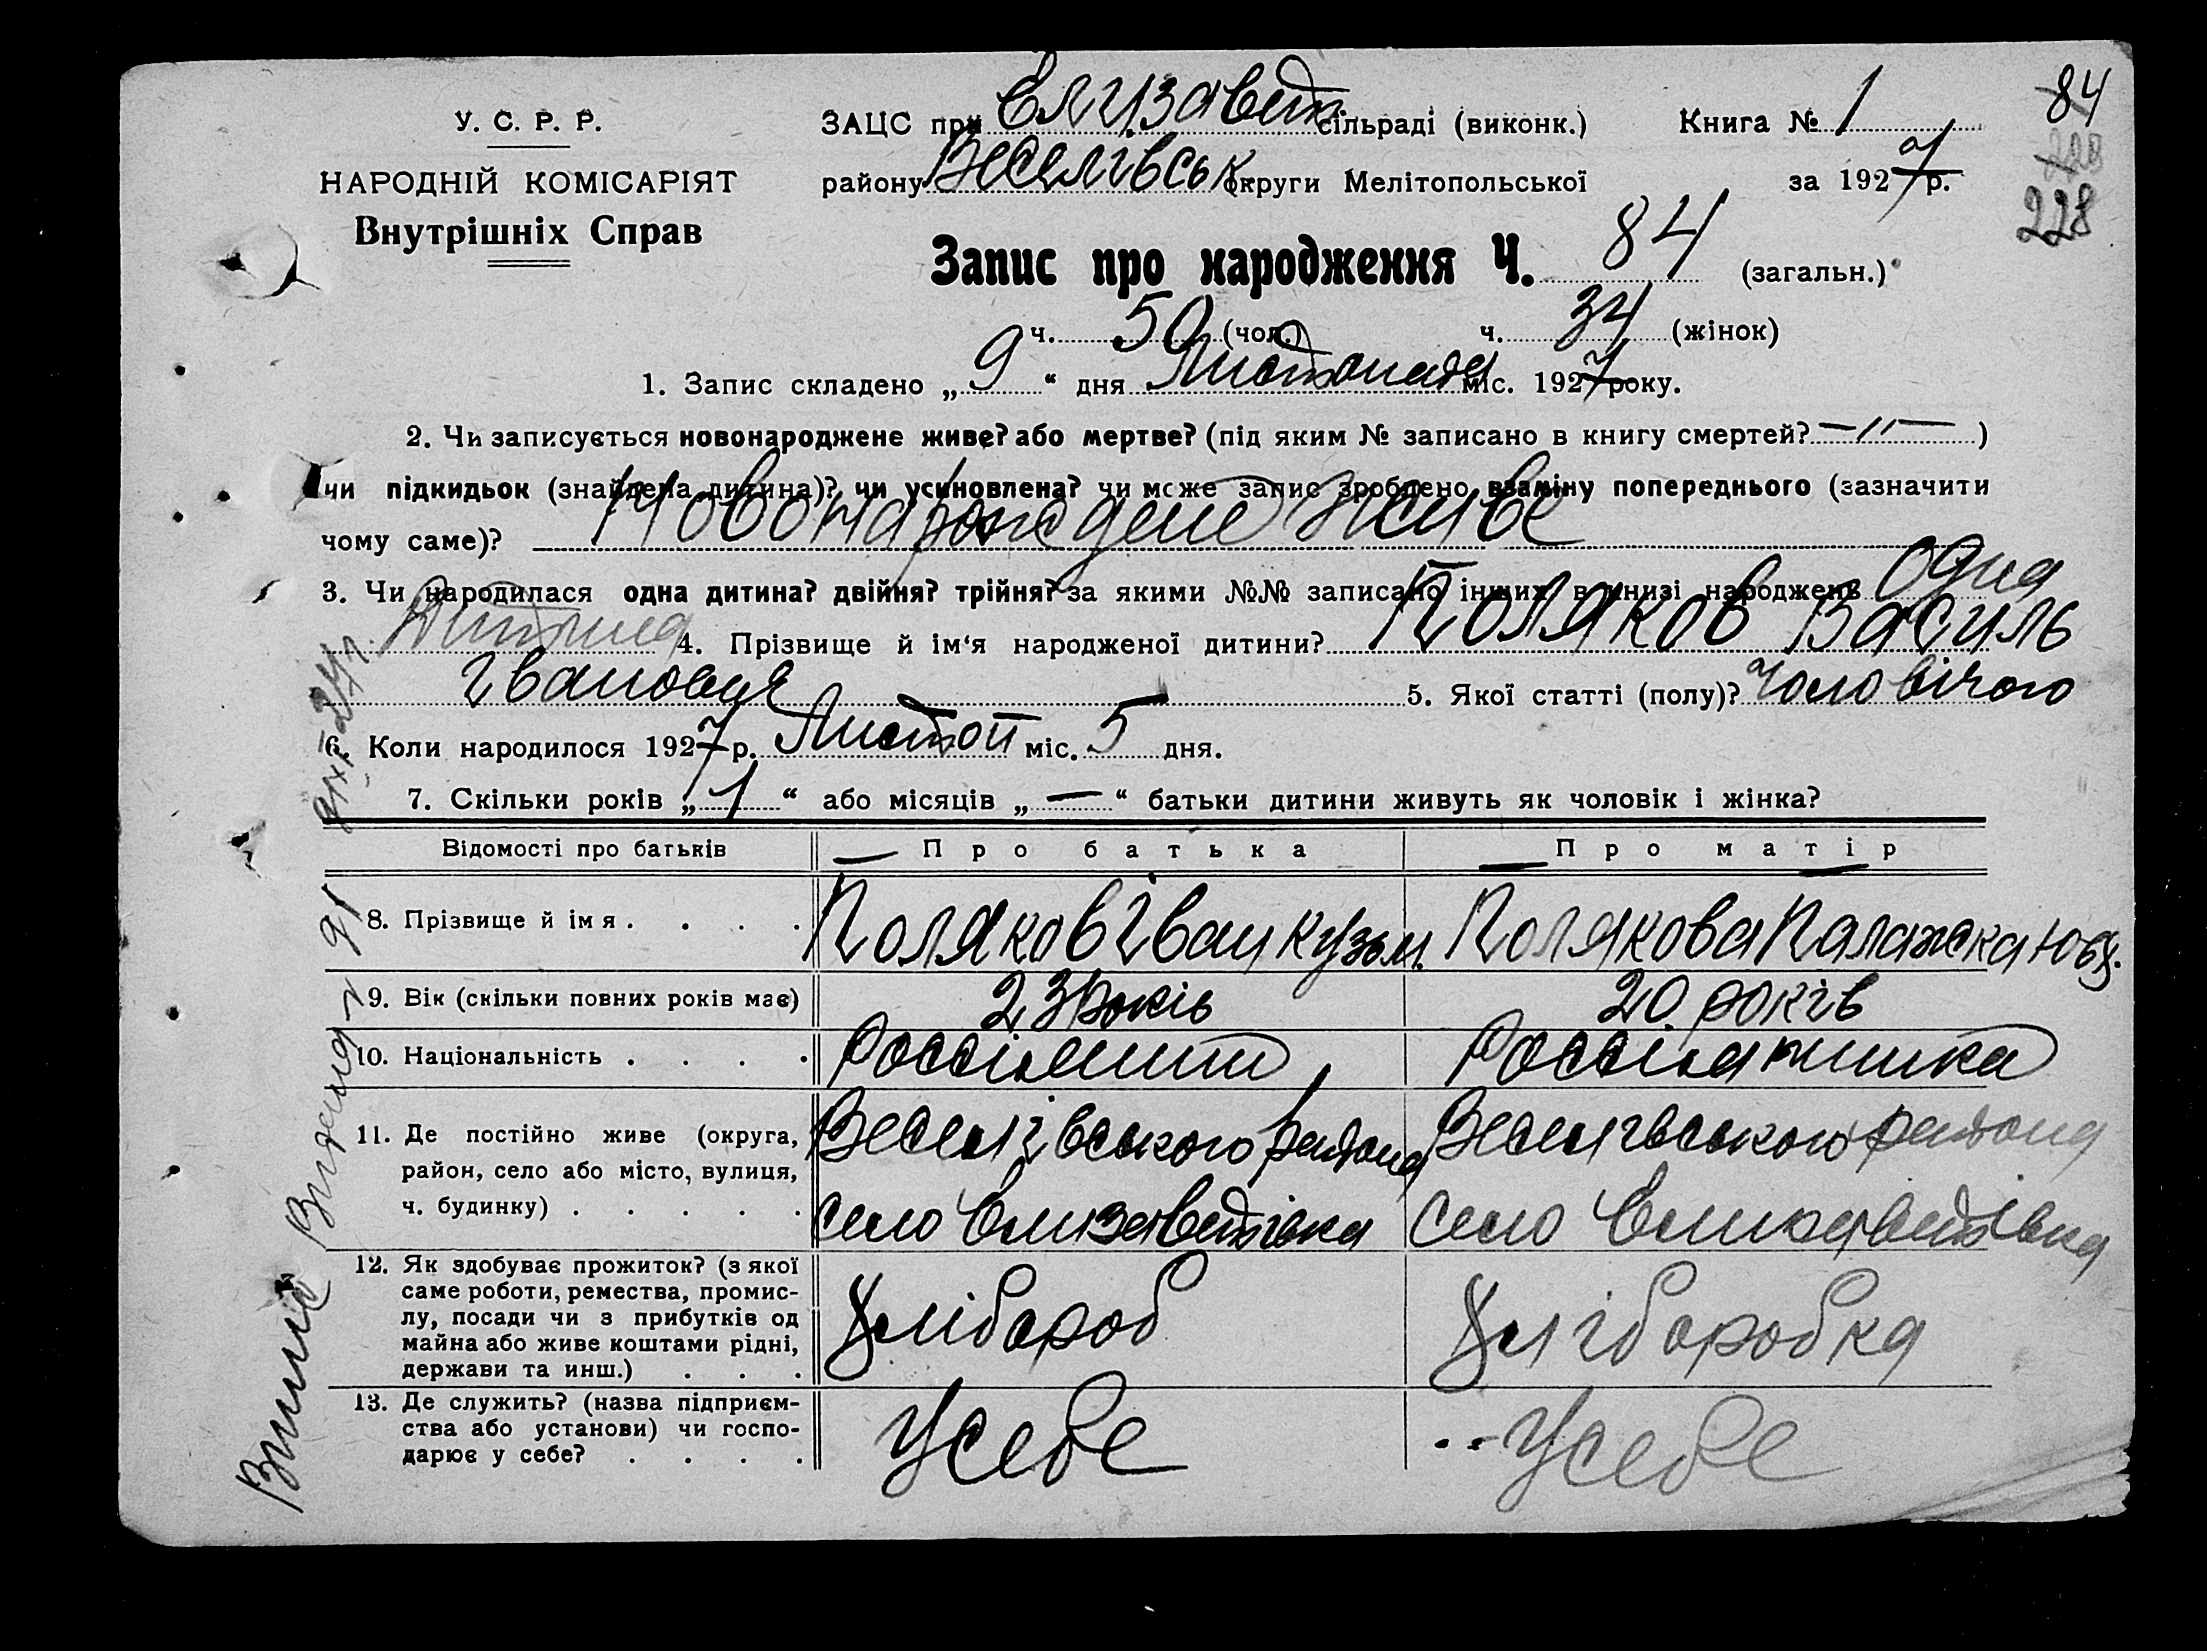 У. С. Р. Р.
НАРОДНІЙ КОМІСАРІЯТ
Внутрішніх Справ
ЗАЦС при Єлизавет. сільраді (виконк.) Книга № 1
району Веселівськ. округи Мелітопольської за 1927 р.
84
228
228
Запис про народження Ч. 84 (загальн.)
ч. 50 (чол.) ч. 34 (жінок)
1. Запис складено „ 9 “ дня Листопада міс. 1927 року.
2. Чи записується новонароджене живе? або мертве? (під яким № записано в книгу смертей? —〃— )
чи підкидьок (знайдена дитина)? чи усиновлена? чи може запис зроблено взаміну попереднього (зазначити
чому саме)? Новонарожденe живе
3. Чи народилася одна дитина? двійня? трійня? за якими №№ записано інших в книзі народжень Одна
Дитина 4. Прізвище й ім‘я народженої дитини? Поляков Василь
Іванович 5. Якої статті (полу)? Чоловічого
6. Коли народилося 1927 р. Листоп міс. 5 дня.
7. Скільки років „ 1 “ або місяців „ — “ батьки дитини живуть як чоловік і жінка?
Відомості про батьків — Про батька — Про матір
8. Прізвище й імя . . . . Поляков Іван Кузьм. Полякова Палажка
9. Вік (скільки повних років має) 23 років 20 років
10. Національність . . . . Россіянин Россіянинка
11. Де постійно живе (округа, Веселівського района Веселівського района
район, село або місто, вулиця,
ч. будинку) . . . . . село Єлизаветівка село Єлизаветівка
12. Як здобуває прожиток? (з якої
саме роботи, ремества, промис-
лу, посади чи з прибутків од Хлібороб Хліборобка
майна або живе коштами рідні,
держави та инш.) . . .
13. Де служить? (назва підприєм-
ства або установи) чи госпо- У себе У себе
дарює у себе? . . . .